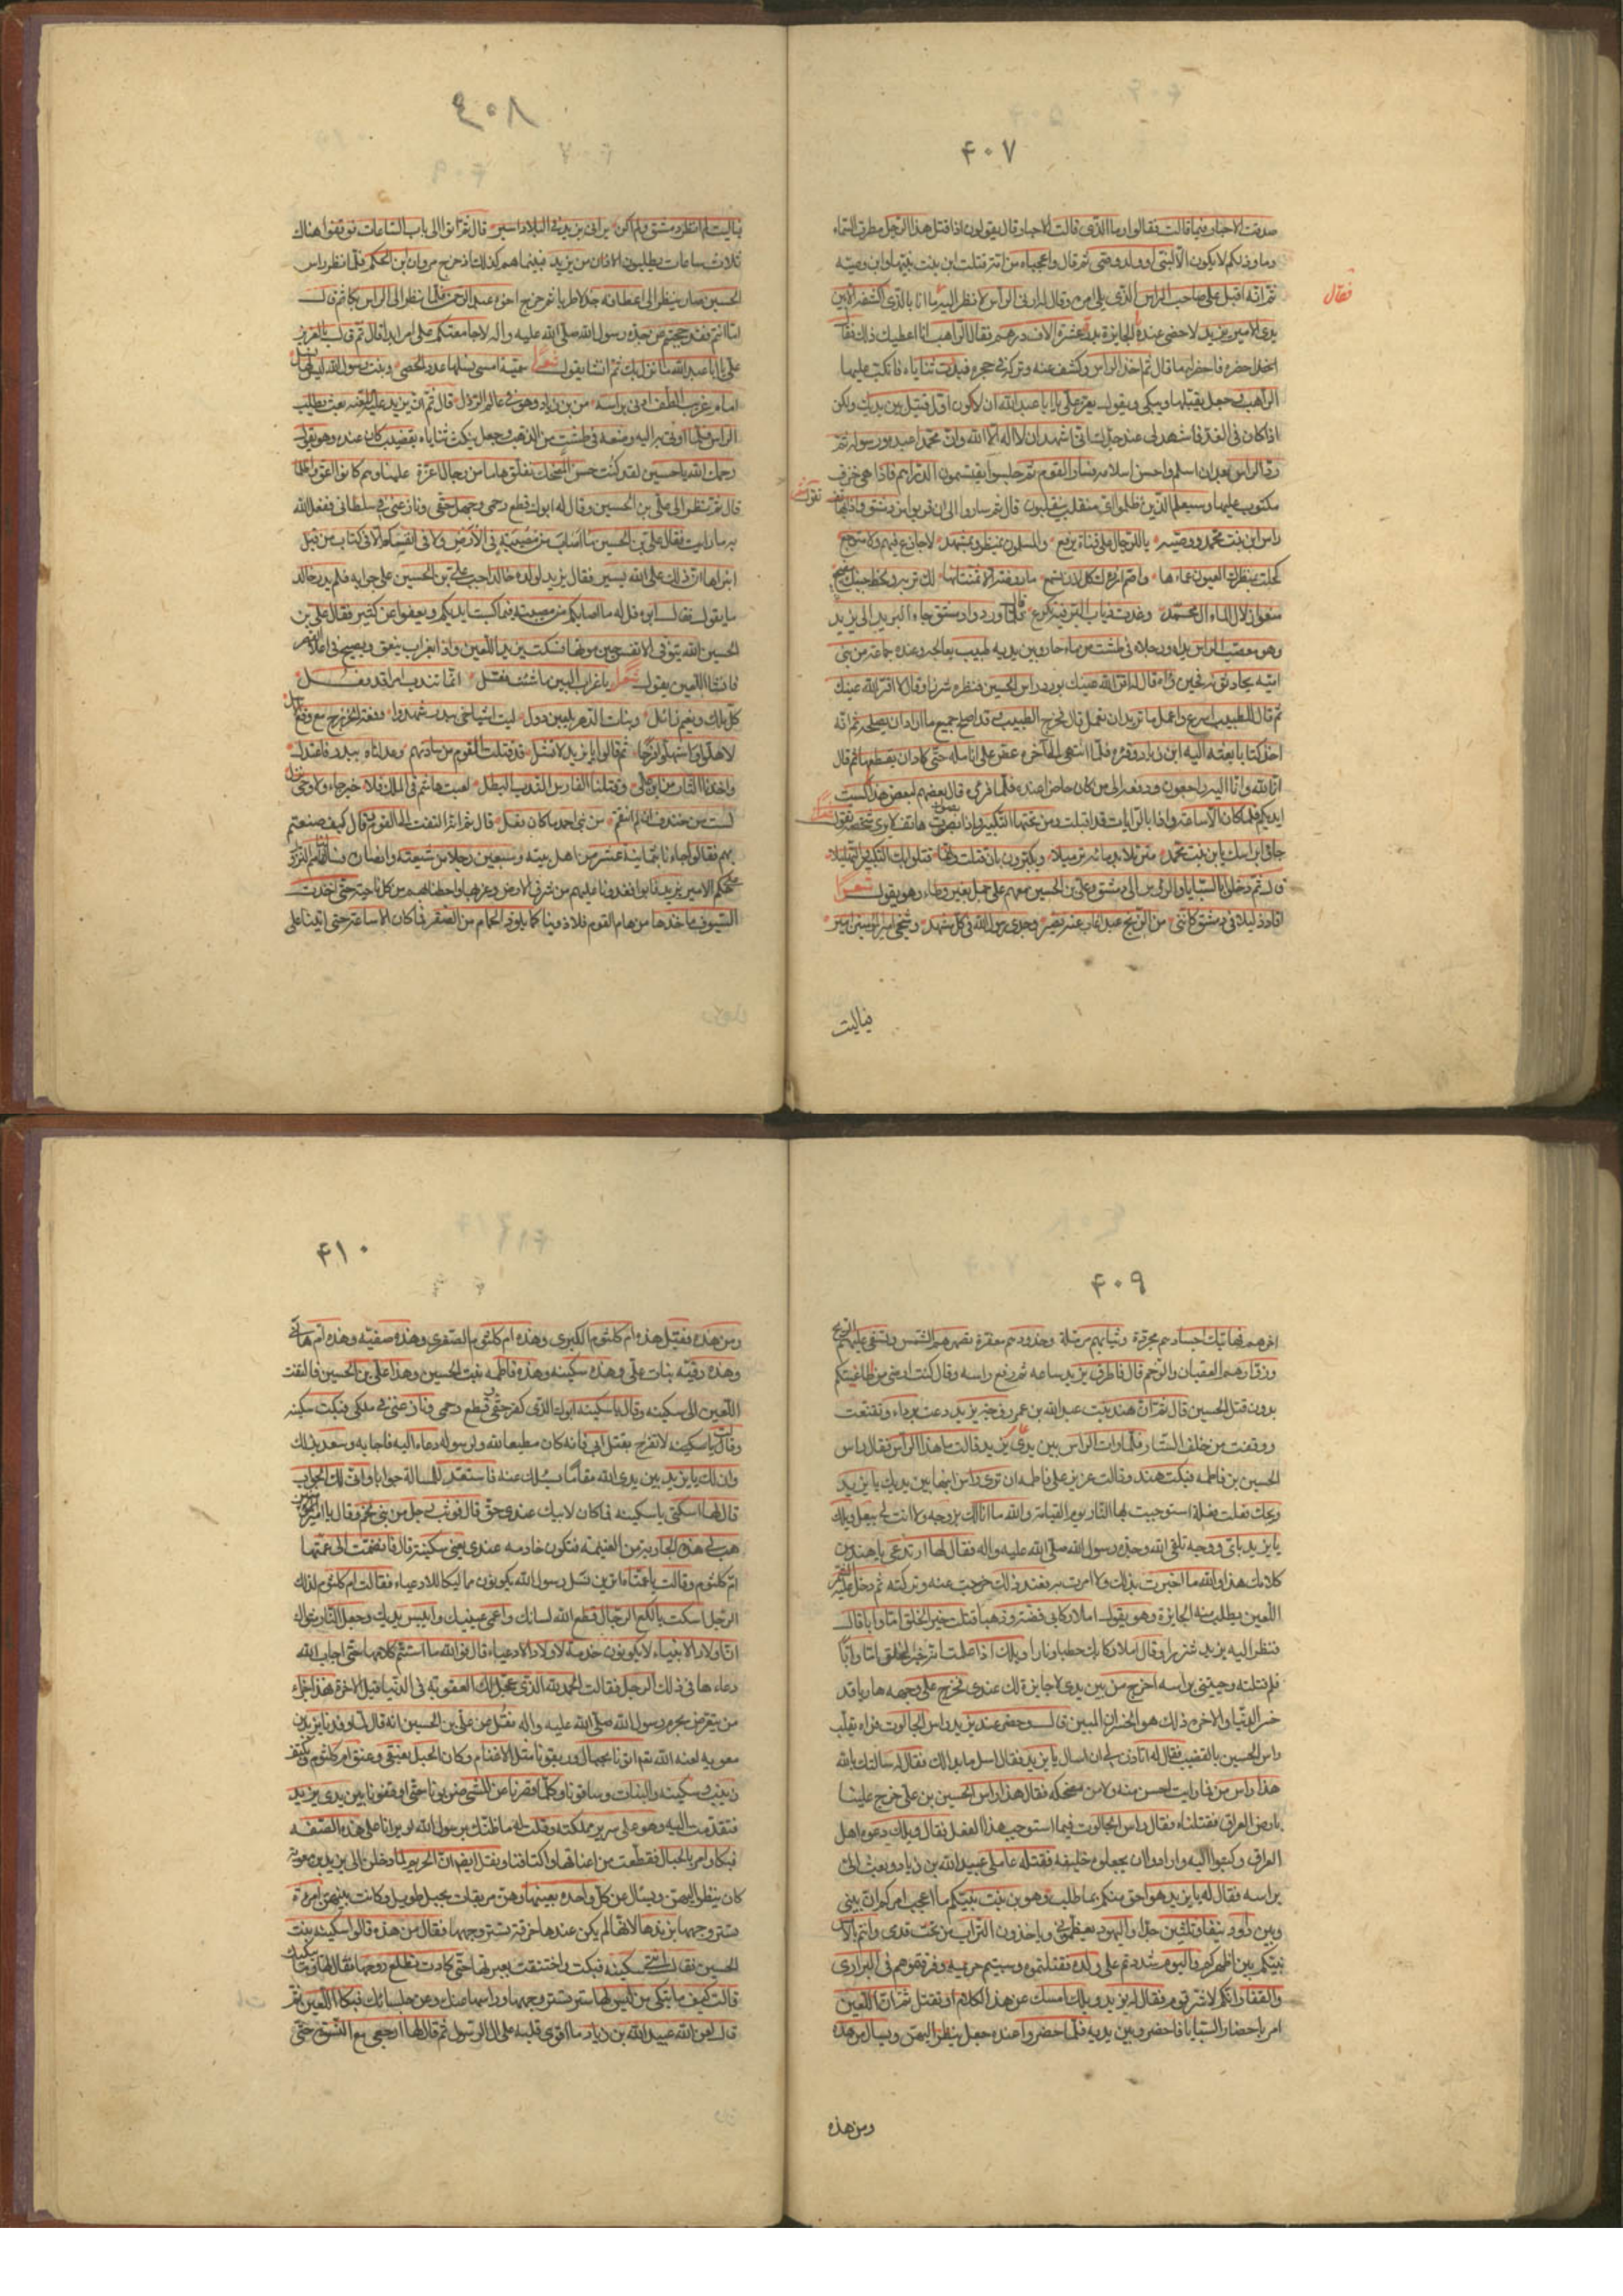 ۴۰۷
صدقت الاحبار فيما قالت فقالوا وما الذي قالت الاحبار قال يقولون اذا قتل هذا الرجل مطرت السماء
دما وذلك لا يكون الا لنبي او ولد وصي ثم قال واعجباه من امة قتلت ابن بنت نبيها وابن وصيه
ثم انه اقبل على صاحب الراس الذي يلي امره وقال له ارني الراس لانظر اليه
فقال
يدي الامير يزيد لاحضى عنده بالجايزة بدرة عشرة الاف درهم فقال الراهب انا اعطيك ذلك فقال
احضره فاحضر له ما قال ثم اخذ الراس وكشف عنه وتركه في حجره فبدت ثناياه فانكب عليها
الراهب وجعل يقبلها ويبكي ويقول يعز علي يا ابا عبدالله ان لا اكون اول قتيل بين يديك ولكن
اذا كان في الغد فاشهد لي عند جدك اني اشهد ان لا اله الا الله وان محمدا عبده ورسوله ثم
رد الراس بعد ان اسلم واحسن اسلامه فساروا القوم ثم جلسوا يقتسمون الدراهم فاذا هي خزف
مكتوب عليها وسيعلم الذين ظلموا اي منقلب ينقلبون قال ثم ساروا الى ان قربوا من دمشق
راس ابن بنت محمد ووصيه يا للرجال على قناة يرفع والمسلمون بمنظر وبمشهد لا جازع فيهم ولا متوجع
كحلت بمنظرك العيون عماءها واصم رزؤك كل اذن تسمع ما روضة الا تمنت انها لك تربة ولخط جنبك مضجع
وهو معصب الراس يداه ورجلاه في طشت من ماء حار وبين يديه طبيب يعالجه وعنده جماعة من بني
امية يحادثونه فحين راه قال له اقر الله عينك بورود راس الحسين فنظره شزرا وقال لا اقر الله عينك
ثم قال للطبيب اسرع واعمل ما تريد ان تعمل قال فخرج الطبيب وقد اصلح جميع ما اراد ان يصلحه ثم انه
اخذ كتابا بعثه اليه ابن زياد وقراه فلما انتهى الى اخره عض على انامله حتى كاد ان يقطعها ثم قال
انا لله وانا اليه راجعون ودفعه الى من كان حاضرا عنده فلما قروه قال بعضهم لبعض هذا ما كسبت
ايديكم فما كان الا ساعة واذا بالرايات قد اقبلت ومن تحتها التكبير واذا بصوت هاتف لا يرى شخصه يقول
جاؤا براسك يا بن بنت محمد مترملا بدمائه ترميلا ويكبرون بان قتلت وانما قتلوا بك التكبير والتهليلا
قال ثم دخلوا بالسبايا والرؤس الى دمشق وعلي بن الحسين معهم على جمل بغير وطاء وهو يقول شعرا
اقاد ذليلا في دمشق كانني من الزنج عبد غاب عنه نصير وجدي رسول الله في كل مشهد وشيخي امير المومنين امير
فياليت
فياليت لم انظر دمشق ولم اكن يراني يزيد في البلاد اسير قال ثم اتوا الى باب الساعات فوقفوا هناك
ثلاث ساعات يطلبون الاذن من يزيد فبينما هم كذلك اذ خرج مروان ابن الحكم فلما نظر راس
الحسين صار ينظر الى اعطافه جذلا طربا ثم خرج اخوه عبد الرحمن فلما نظر الى الراس بكا ثم قال
اما انتم فقد حجبتم عن جده رسول الله صلى الله عليه واله لا جامعتكم على امر ابدا ثم قال بالعزيز
علي يا ابا عبدالله ما نزل بك ثم انشا يقول شعرا سمية امسى نسلها عدد الحصى وبنت رسول الله ليس لها نسل
قال ثم ان يزيد عليه اللعنة بعث يطلب
الراس فلما اوتي به اليه وضعه في طشت من الذهب وجعل ينكث ثناياه بقضيب كان عنده وهو يقول
رحمك الله يا حسين لقد كنت حسن المضحك نفلق هاما من رجال اعزة علينا وهم كانوا اعق واظلما
قال ثم نظر الى علي بن الحسين وقال له ابوك قطع رحمي وجهل حقي ونازعني في سلطاني ففعل الله
به ما رايت فقال علي بن الحسين ما اصاب من مصيبة في الارض ولا في انفسكم الا في كتاب من قبل
ان نبراها ان ذلك على الله يسير فقال يزيد لولده خالد اجب علي بن الحسين على جوابه فلم يدر خالد
ما يقول فقال ابوه قل له ما اصابكم من مصيبة فبما كسبت ايديكم ويعفوا عن كثير فقال علي بن
الحسين الله يتوفى الانفس حين موتها فسكت يزيد اللعين واذا بغراب ينعق ويصيح في اعلا القصر
فانشا اللعين يقول شعرا يا غراب البين ما شئت فقل انما تندب امرا قد فعل
كل ملك ونعيم زائل وبنات الدهر يلعبن بكل ليت اشياخي ببدر شهدوا وقعة الخزرج مع وقع الاسل
لاهلوا واستهلوا فرحا ثم قالوا يا يزيد لا تشل قد قتلت القوم من ساداتهم وعدلناه ببدر فاعتدل
واخذنا الثار من علي وقتلنا الفارس الندب البطل لعبت هاشم في الملك فلا خبر جاء ولا وحي نزل
لست من خندف ان لم انتقم من بني احمد ما كان فعل قال ثم ان يزيد التفت الى القوم وقال كيف صنعتم
بهم فقالوا جاءنا بثمانية عشر من اهل بيته وسبعين رجلا من شيعته وانصاره فسالناهم النزول
على حكم الامير يزيد فابوا فغدونا عليهم من شرق الارض وغربها واحطنا بهم من كل ناحية حتى اخذت
السيوف ماخذها من هام القوم فلاذوا بنا كما يلوذ الحمام من الصقر فما كان الا ساعة حتى اتينا على
۴۰۹
اخرهم فهاتيك اجسادهم مجردة وثيابهم مرملة وخدودهم معفرة تصهرهم الشمس وتسفي عليهم الريح
وزوارهم العقبان والرخم قال فاطرق يزيد ساعة ثم رفع راسه وقال كنت ارضى من طاعتكم
بدون قتل الحسين قال ثم ان هند بنت عبدالله بن عمرو زوجة يزيد دعت برداء وتقنعت
ووقفت من خلف الستار فلما رات الراس بين يدي يزيد قالت ما هذا الراس فقال راس
الحسين بن فاطمه فبكت هند وقالت عزيز على فاطمه ان ترى راس ابنها بين يديك يا يزيد
ويحك فعلت فعلة استوجبت بها النار يوم القيامة والله ما انا لك بزوجه ولا انت لي ببعل ويلك
يا يزيد باي وجه تلقى الله وجده رسول الله صلى الله عليه واله فقال لها ارتدعي يا هند من
كلامك هذا والله ما اخبرت بذلك ولا امرت به فعند ذلك خرجت عنه وتركته ثم دخل عليه الشمر
اللعين يطلب منه الجايزة وهو يقول املا ركابي فضة وذهبا قتلت خير الخلق اما وابا قال
فنظر اليه يزيد شزرا وقال املا ركابك حطبا ونارا ويلك اذا علمت انه خير الخلق اما وابا
فلم قتلته وجئتني براسه اخرج من بين يدي لا جايزة لك عندي فخرج على وجهه هاربا قد
خسر الدنيا والاخرة ذلك هو الخسران المبين قال وحضر عند يزيد راس الجالوت فراه يقلب
راس الحسين بالقضيب فقال له اتاذن لي ان اسال يا يزيد فقال اسل ما بدا لك فقال له سالتك بالله
هذا راس من فما رايت احسن منه ولا من مضحكه فقال هذا راس الحسين بن علي خرج علينا
بارض العراق فقتلناه فقال راس الجالوت فبما استوجب هذا الفعل فقال ويلك دعوه اهل
العراق وكتبوا اليه وارادوا ان يجعلوه خليفه فقتله عاملي عبيد الله بن زياد وبعث الي
براسه فقال له يا يزيد هو احق منكم بما طلب وهو بن بنت نبيكم ما اعجب امركم ان بيني
وبين داود نيفا وثلثين جدا واليهود يعظموني وياخذون التراب من تحت قدمي وانتم بالامس
نبيكم بين اظهركم واليوم شددتم على ولده فقتلتموه وسبيتم حريمه وفرقتموهم في البراري
والقفار انكم لاشر قوم فقال له يزيد ويلك امسك عن هذا الكلام او تقتل ثم ان اللعين
امر باحضار السبايا فاحضروا بين يديه فلما حضروا عنده جعل ينظر اليهن ويسال من هذه
ومن هذه
۴۱۰
ومن هذه فقيل هذه ام كلثوم الكبرى وهذه ام كلثوم الصغرى وهذه صفيه وهذه ام هاني
وهذه رقيه بنات علي وهذه سكينه وهذه فاطمه بنت الحسين وهذا علي بن الحسين فالتفت
اللعين الى سكينه وقال يا سكينه ابوك الذي كفر حقي وقطع رحمي ونازعني في ملكي فبكت سكينه
وقالت لا تفرح بقتل ابي فانه كان مطيعا لله ولرسوله ودعاه اليه فاجابه وسعد بذلك
وان لك يا يزيد بين يدي الله مقاما يسئلك عنه فاستعد للمسالة جوابا وانى لك الجواب
قال لها اسكتي يا سكينه فما كان لابيك عندي حق قال فوثب رجل من بني لخم وقال يا امير المومنين
هب لي هذه الجارية من الغنيمه فتكون خادمه عندي يعني سكينه قال فانضمت الى عمتها
ام كلثوم وقالت يا عمتاه اترين نسل رسول الله يكونون مماليكا للادعياء فقالت ام كلثوم لذلك
الرجل اسكت يا لكع الرجال قطع الله لسانك واعمى عينيك وايبس يديك وجعل النار مثواك
ان اولاد الانبياء لا يكونون خدمة لاولاد الادعياء قال فوالله ما استتم كلامها حتى اجاب الله
دعاءها في ذلك الرجل فقالت الحمد لله الذي عجل لك العقوبة في الدنيا قبل الاخرة فهذا جزاء
من يتعرض بحرم رسول الله صلى الله عليه واله نقل عن علي بن الحسين انه قال لما وفدنا يزيد بن
معويه لعنه الله ثم اتونا بحبال وربقونا مثل الاغنام وكان الحبل بعنقي وعنق ام كلثوم وبكتف
زينب وسكينه والبنات وساقونا وكلما قصرنا عن المشي ضربونا حتى اوقفونا بين يدي يزيد
فتقدمت اليه وهو على سرير مملكته وقلت له ما ظنك برسول الله لو يرانا على هذه الصفه
فبكا وامر بالحبال فقطعت من اعناقنا واكتافنا ونقل ايضا ان الحريم لما دخلن الى يزيد بن معويه
كان ينظر اليهن ويسال عن كل واحدة بعينها وهن مربقات بحبل طويل وكانت بينهن امرءة
تستر وجهها بزندها لانها لم يكن عندها خرقة تستر وجهها فقال من هذه قالوا سكينه بنت
الحسين فقال انت سكينه فبكت واختنقت بعبرتها حتى كادت تطلع روحها فقال لها وما يبكيك
قالت كيف ما تبكي من ليس لها ستر تستر وجهها وراسها عنك وعن جلسائك فبكا اللعين ثم
قال لعن الله عبيد الله بن زياد ما اقوى قلبه على ال الرسول ثم قال لها ارجعي مع النسوة حتى